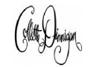 Collette Dinnigan